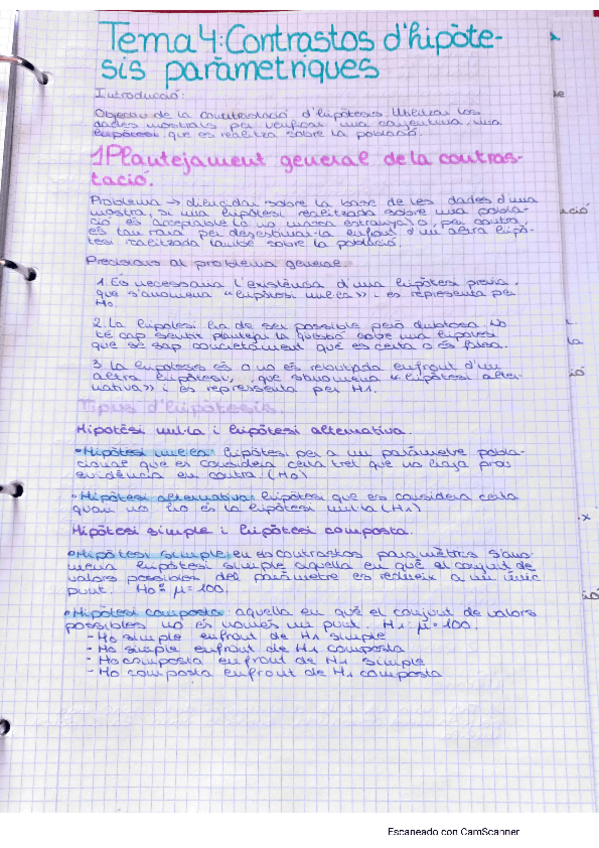 Tema 4: Contrastos d'hipòte-
sis paràmetriques
Introducció:
Objectiu de la contrastació d'hipòtesis. Utilitzar les
dades mostrals per verificar una conjectura, una
hipòtesi que es realitza sobre la població.
1 Plantejament general de la contras-
tació.
Problema → dilucidar sobre la base de les dades d'una
mostra, si una hipòtesi realitzada sobre una pobla-
ció és acceptable o, per contra,
és tan rara per desestimar-la enfront d'un altra hipò-
tesi realitzada també sobre la població.
Precisions al problema general.
1. És necessaria l'existència d'una hipòtesi previa
que s'anomena "hipòtesi nul·la" i es representa per
H0
2. La hipòtesi ha de ser possible però dubtosa. No
té cap sentit plantejar la questió sobre una hipòtesi
que se sap concretament que és certa o és falsa.
3. la hipòtesis és o no és rebutjada enfront d'un
altra hipòtesi, que s'anomena «hipòtesi alter-
nativa» i es representa per H1.
Tipus d'hipòtesis
Hipotèsi nul·la i hipòtesi alternativa.
•Hipòtesi nul·la: hipòtesi per a un paràmetre pobla-
cional que es considera certa tret que no haja prou
evidència en contra. (H0)
•Hipòtesi alternativa: hipòtesi que es considera certa
quan no ho és la hipòtesi nul·la (H1)
Hipòtesi simple i hipòtesi composta.
•Hipòtesi simple: en els contrastos paramètrics s'ano-
mena hipòtesi simple aquella en què el conjunt de
valors possibles del paràmetre es redueix a un únic
punt. H0: μ = 100.
•Hipòtesi composta: aquella en què el conjunt de valors
possibles no és només un punt. H1: μ 100.
- H0 simple enfront de H1 simple
- H0 simple enfront de H1 composta
- H0 composta enfront de H1 simple
- H0 composta enfront de H1 composta
Escaneado con CamScanner